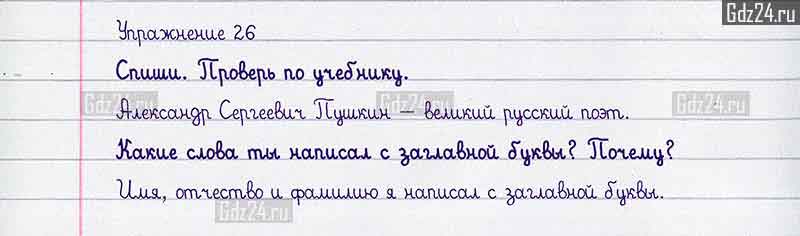 Gdz24.ru
Упражнение 26
Спиши. Проверь по учебнику.
Gdz24.ru Gdz24.ru Gdz24.ru
Александр Сергеевич Пушкин – великий русский поэт.
Какие слова ты написал с заглавной буквы? Почему?
Имя, отчество и фамилию я написал с заглавной буквы.
Gdz24.ru